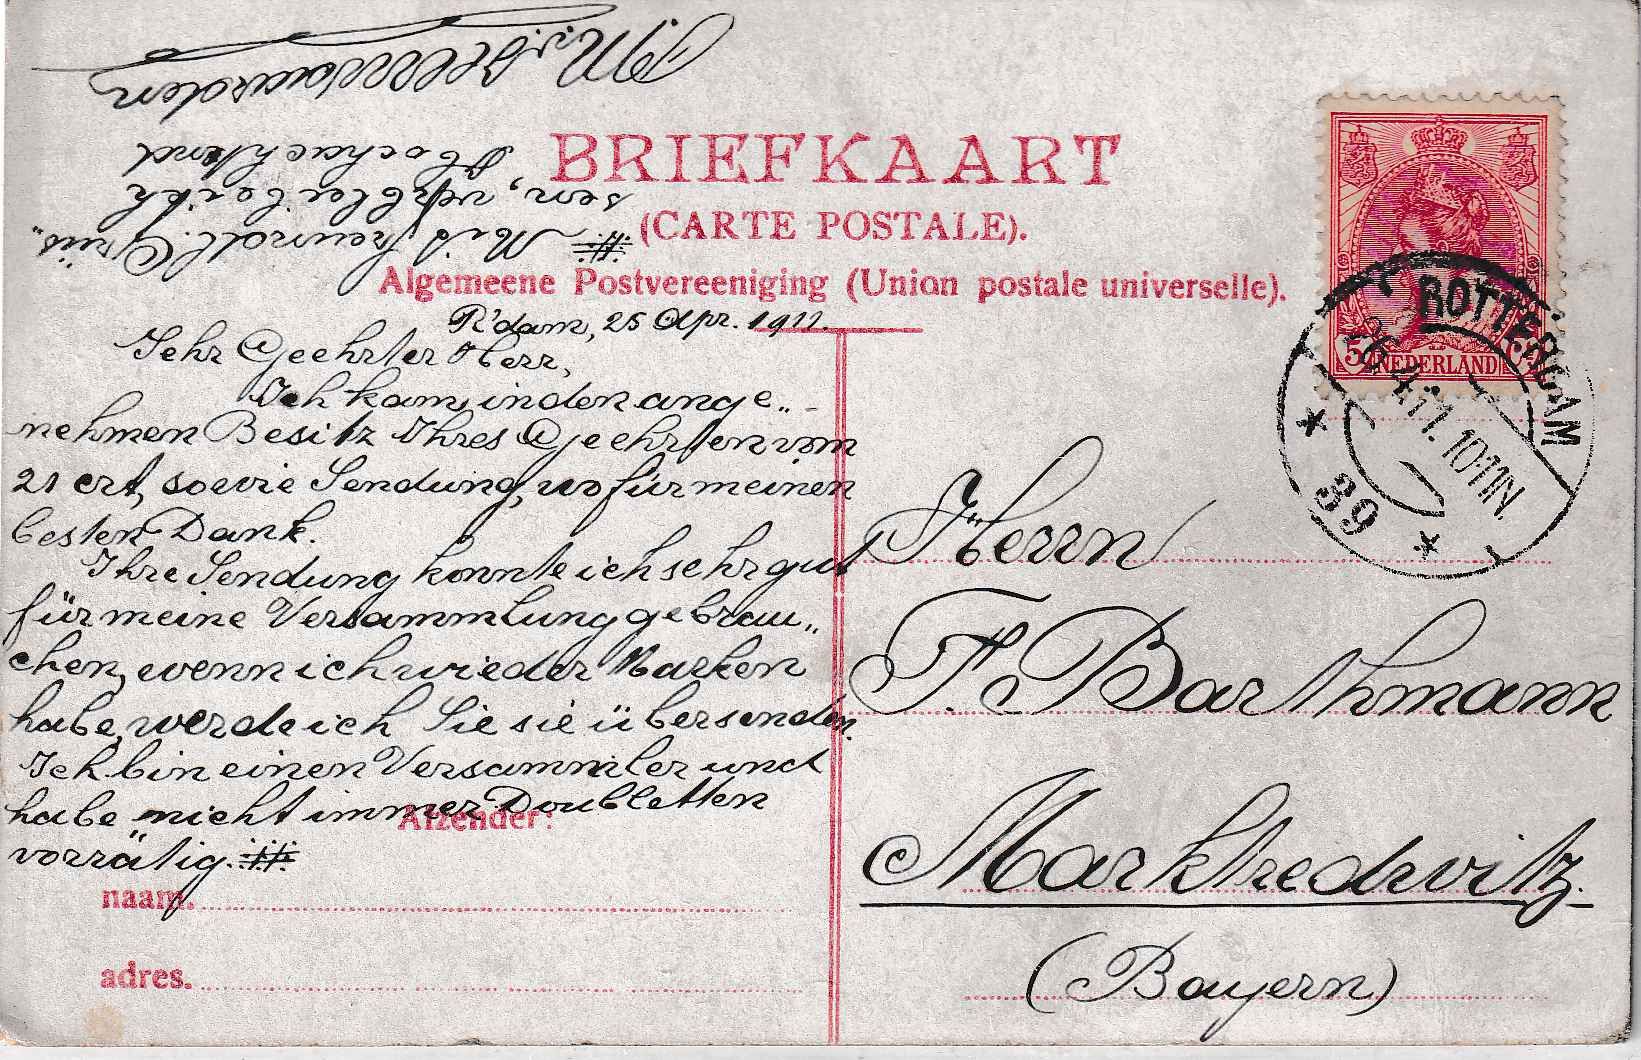 BRIEFKAART
(CARTE POSTALE).
Algemeene Postvereeniging (Union postale universelle).
R'dam, 25 Apr. 1911.
Sehr Geehrter Herr,
Ich kam in den ange„
nehmen Besitz Ihres Geehrten vom
21 crt, sowie Sendung, wofür meinen
besten Dank.
Ihre Sendung konnte ich sehr gut
für meine Versammlung gebrau„
chen, wenn ich wieder Marken
habe, werde ich Sie sie übersenden.
Ich bin einen Versammler und
habe nicht immer Doubletten
vorrätig. #
# Mit freundl. Grüs„
sen, verbleibe ich
Hochachtend
Afzender:
naam.
adres.
NEDERLAND
5
ROTTERDAM
26 4 11. 10-11N.
* 39 *
Herrn
F. Barthmann
Marktredwitz.
(Bayern)